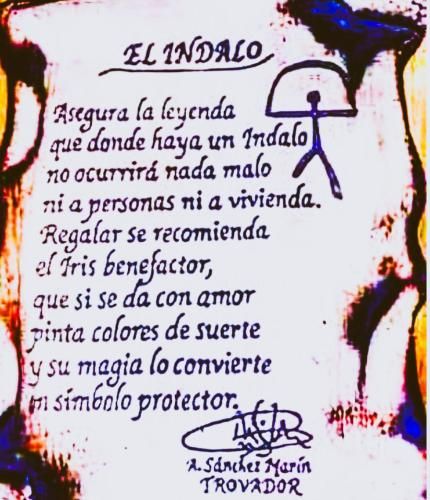 EL INDALO
Asegura la leyenda
que donde haya un Indalo
no ocurrirá nada malo
ni a personas ni a vivienda.
Regalar se recomienda
el Iris benefactor,
que si se da con amor
pinta colores de suerte
y su magia lo convierte
en símbolo protector.
A. Sánchez Marín
TROVADOR